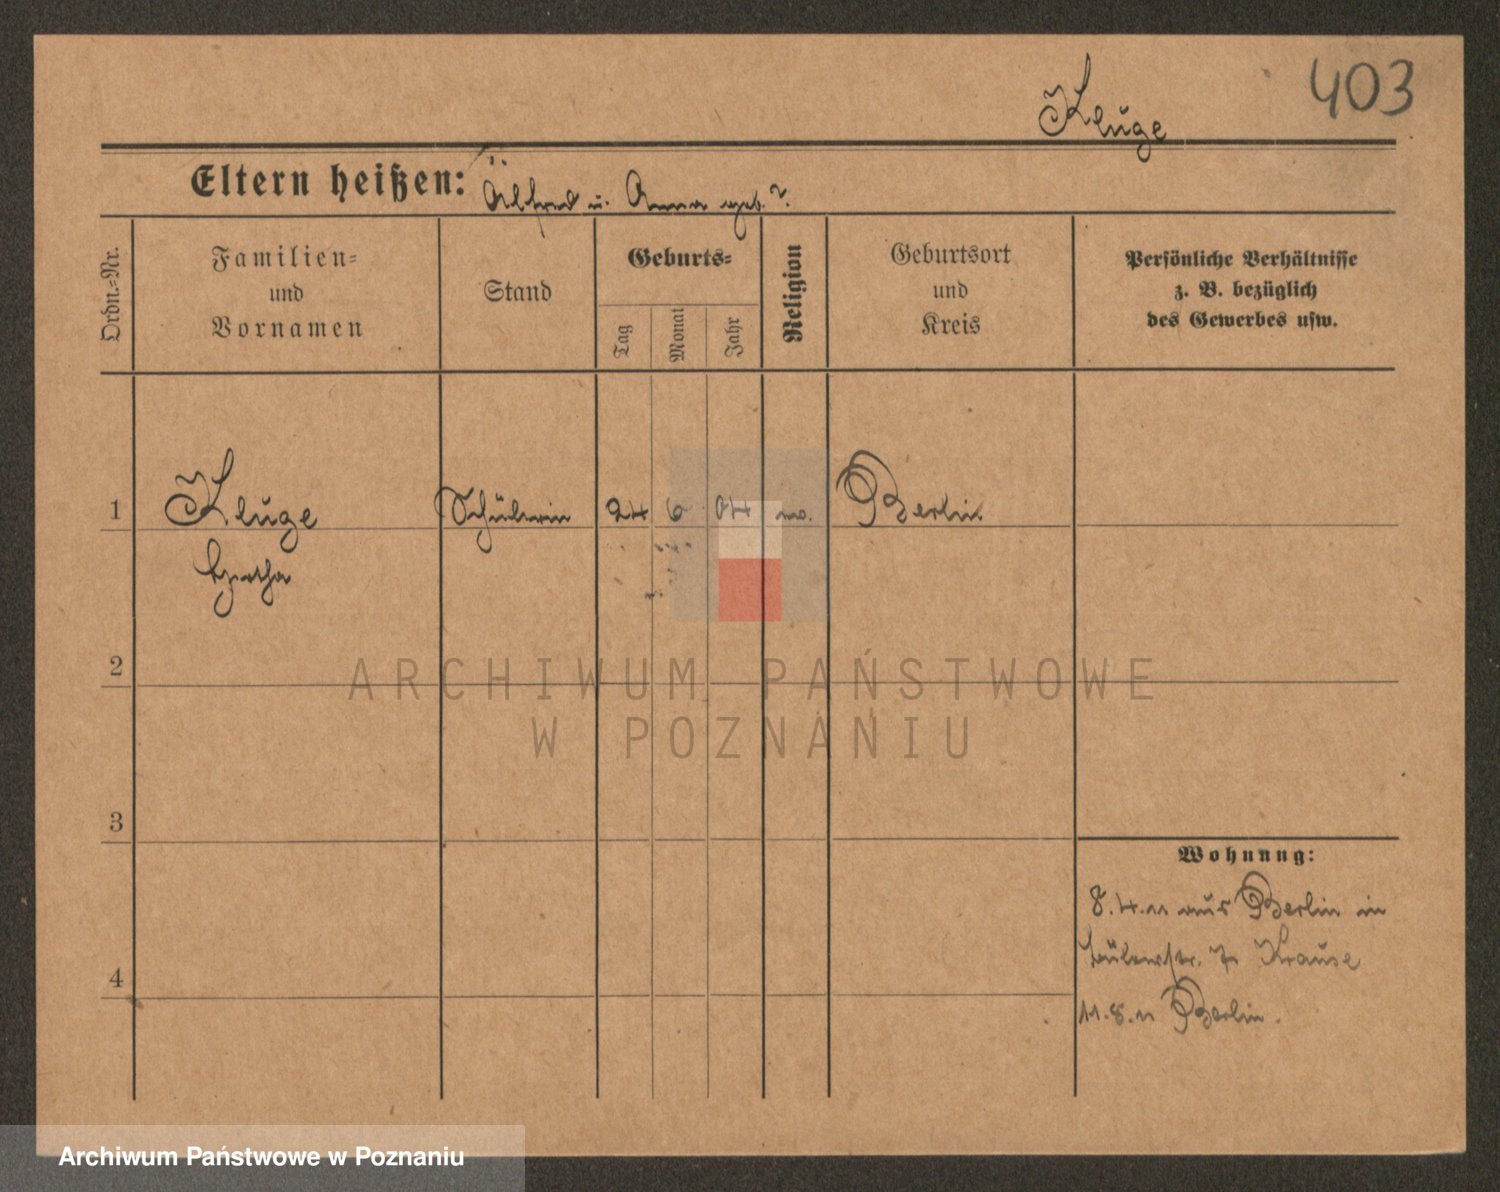 403
Kluge
Eltern heißen: Alfred u. Anna geb. ?.
Ordn.=Nr.
Familien=
und
Vornamen
Stand
Geburts=
Tag
Monat
Jahr
Religion
Geburtsort
und
Kreis
Persönliche Verhältnisse
z. B. bezüglich
des Gewerbes usw.
1 Kluge Schülerin 24 6 04 ev. Berlin
Hertha
2
3
4
Wohnung:
8.4.11 aus Berlin in
7 Krause
11.8.11 Berlin.
ARCHIWUM PAŃSTWOWE
W POZNANIU
Archiwum Państwowe w Poznaniu